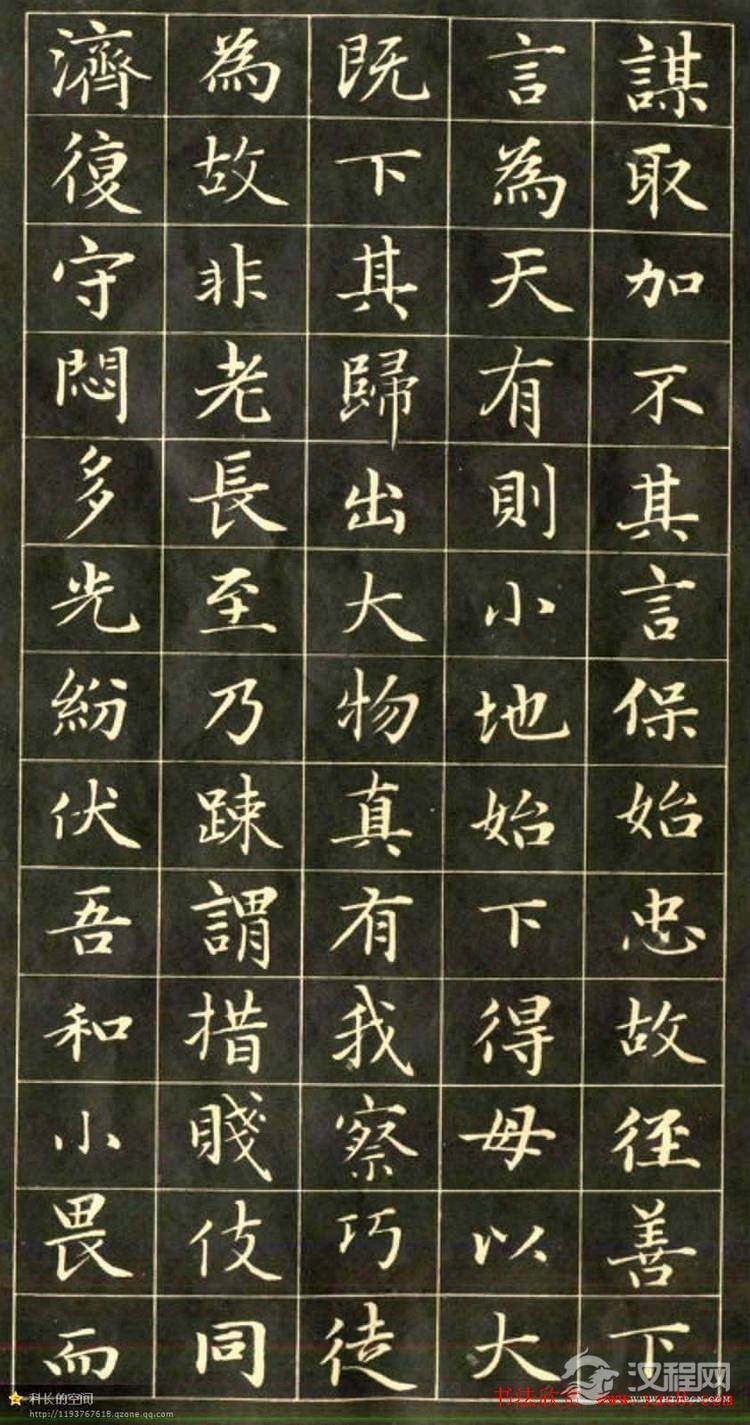 謀取加不其言保始忠故徑善下
言為天有則小地始下得毋以大
既下其歸出大物真有我察巧徒
為故非老長至乃踈謂措賤伎同
濟復守悶多光紛伏吾和小畏而
汉程网
科长的空间
http://1193767618.qzone.qq.com